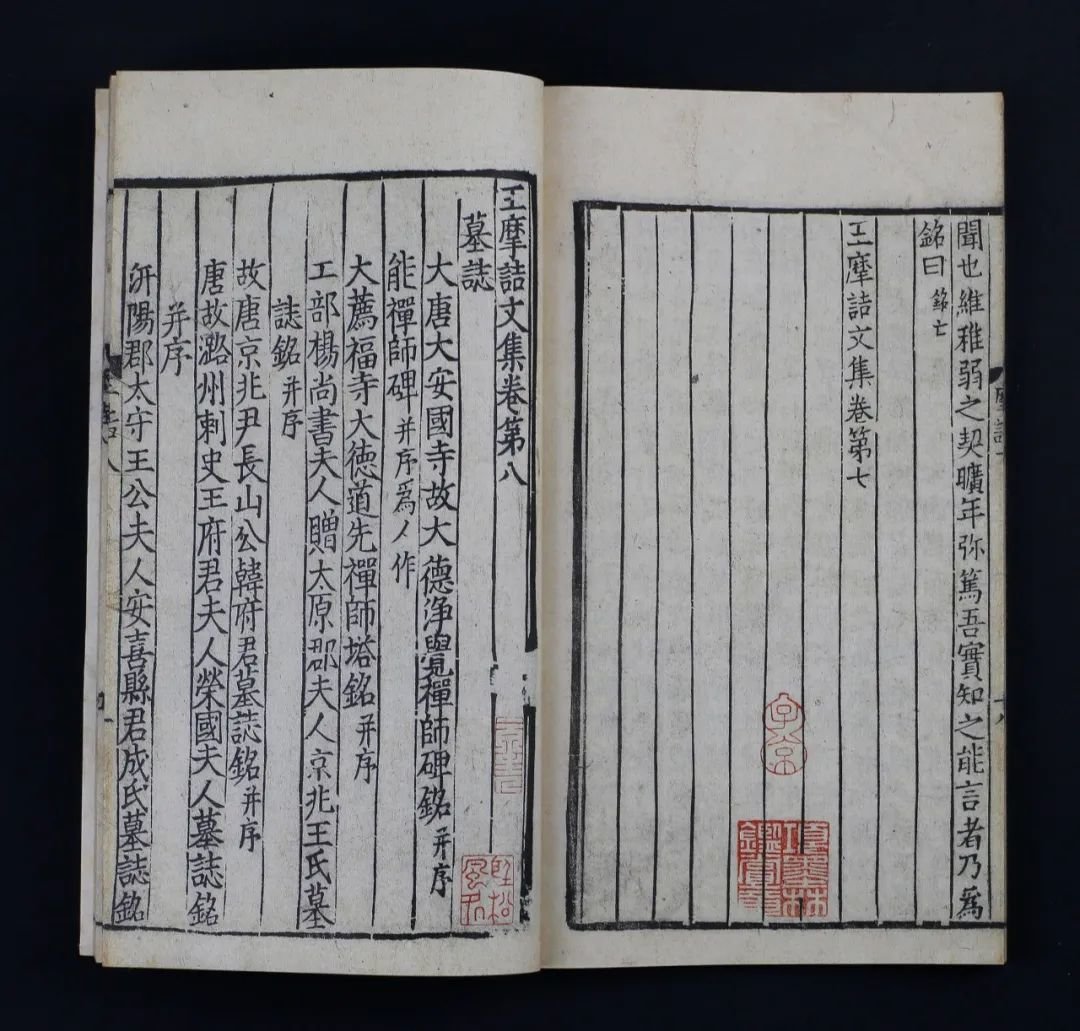 聞也維稚弱之契曠年弥篤吾實知之能言者乃爲
銘曰 銘亡
王摩詰文集卷第七
項墨林鑑賞章
王摩詰文集卷第八
墓誌
大唐大安國寺故大德淨覺禪師碑銘并序
能禪師碑并序爲人作
大薦福寺大德道光禪師塔銘并序
工部楊尚書夫人贈太原郡夫人京兆王氏墓
誌銘并序
故唐京兆尹長山公韓府君墓誌銘并序
唐故潞州刺史王府君夫人榮國夫人墓誌銘
并序
汧陽郡太守王公夫人安喜縣君成氏墓誌銘